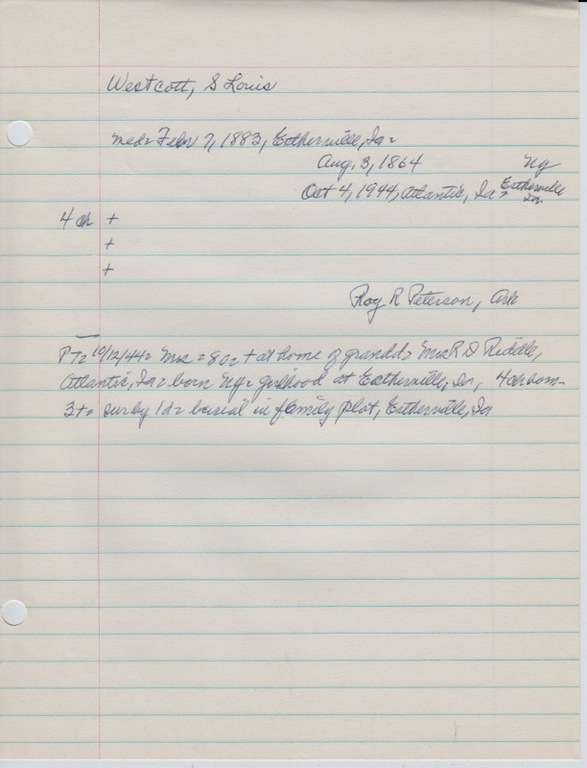 Westcott, S Louis
med= Febr 7, 1883, Estherville, Ia=
Aug, 3, 1864 Ny
Oct 4, 1944, Atlantic, Ia> Estherville Ia.
4 ch +
+
+
Roy R Peterson, Ark
PT= 10/12/44= Mrs = 80= + at home of grandd> Mrs R D Riddle,
Atlantic, Ia= born Ny= girlhood at Estherville, Ia, 4 ch born-
3 += sur by 1 d= burial in family plot, Estherville, Ia